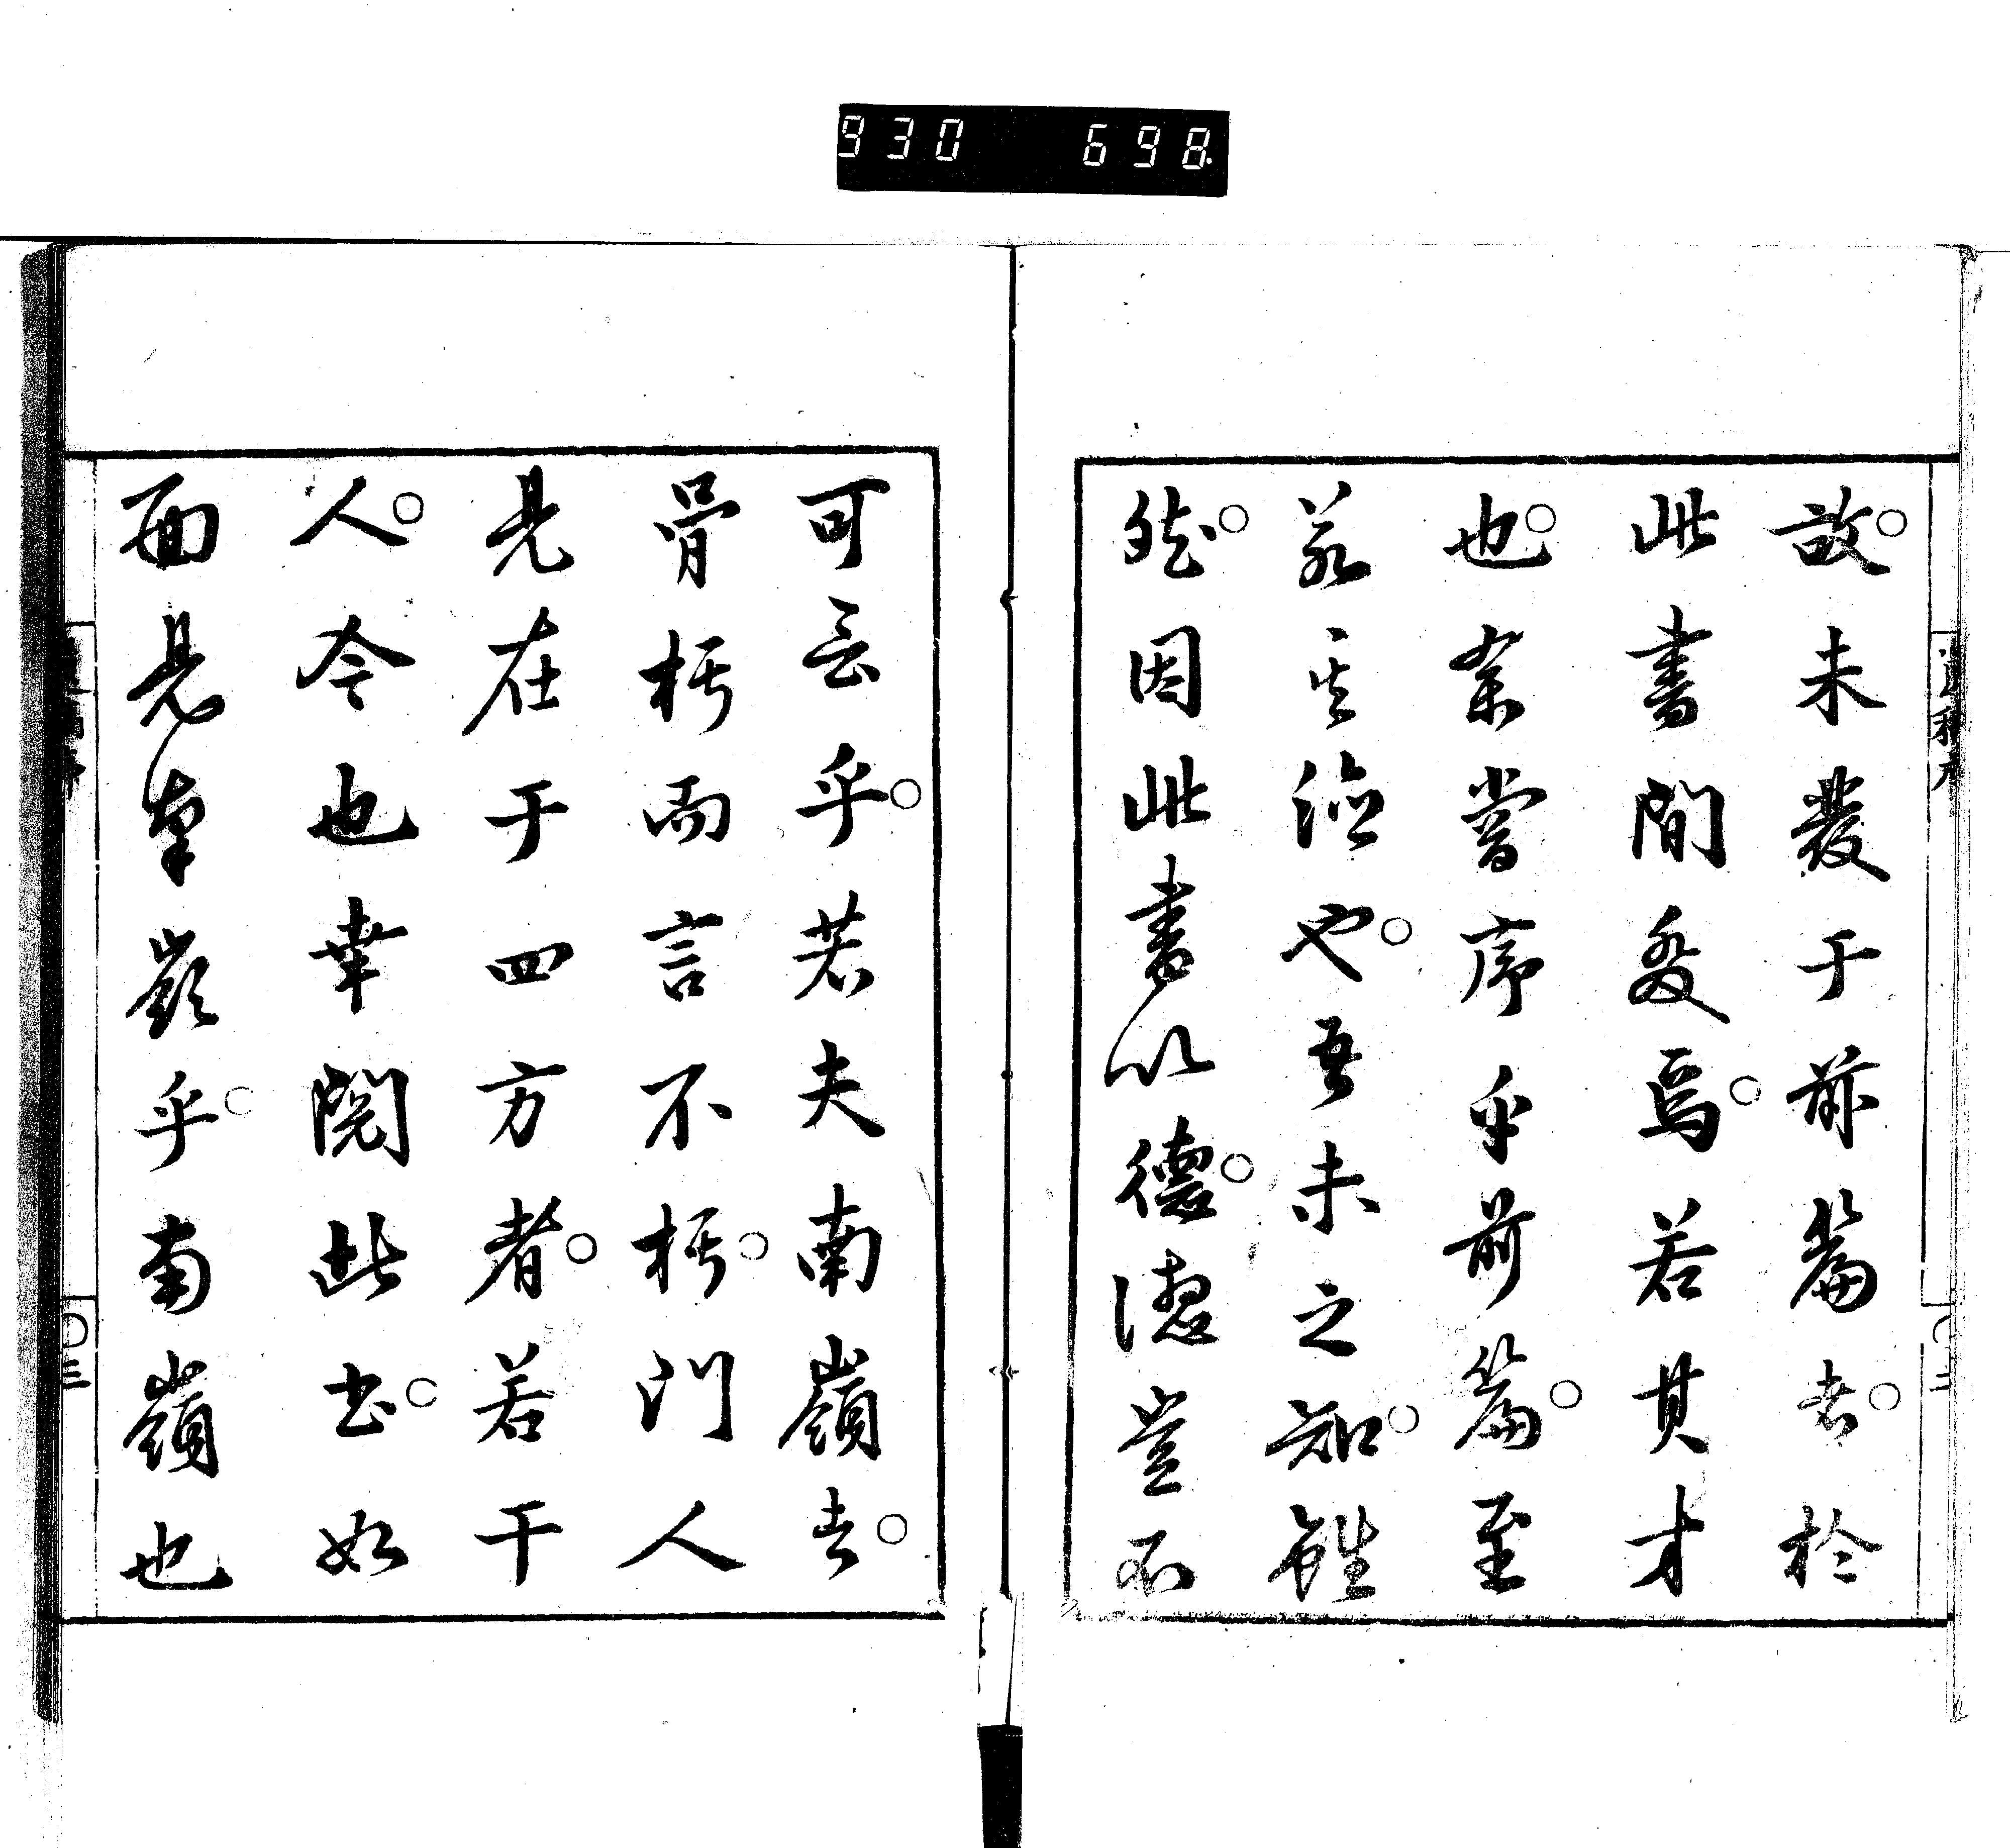 930 698
故未發于前篇者於
此書間發焉若其才
也余嘗序乎前篇至
若其也吾未之知雖
然因此書以德德豈不
可云乎若夫南嶺者
骨朽而言不朽門人
見在于四方者若干
人今也幸閱此書如
面見南嶺乎南嶺也
三